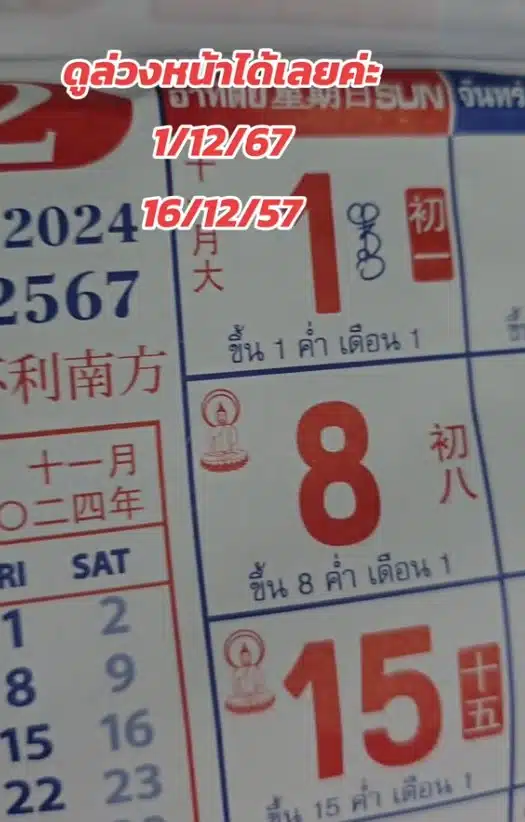 ดูล่วงหน้าได้เลยค่ะ
1/12/67
16/12/57
2
อาทิตย์ 星期日 SUN
จันทร์
2024
2567
利南方
十一月
二〇二四年
RI SAT
1 2
8 9
15 16
22 23
十
月
大
1
初一
ขึ้น 1 ค่ำ เดือน 1
8
初八
ขึ้น 8 ค่ำ เดือน 1
15
十五
ขึ้น 15 ค่ำ เดือน 1